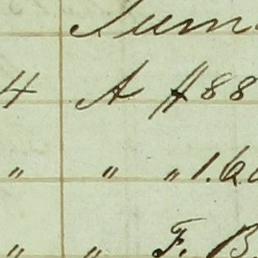 Sum
4 A #88
" " " 1.6
" " F. B